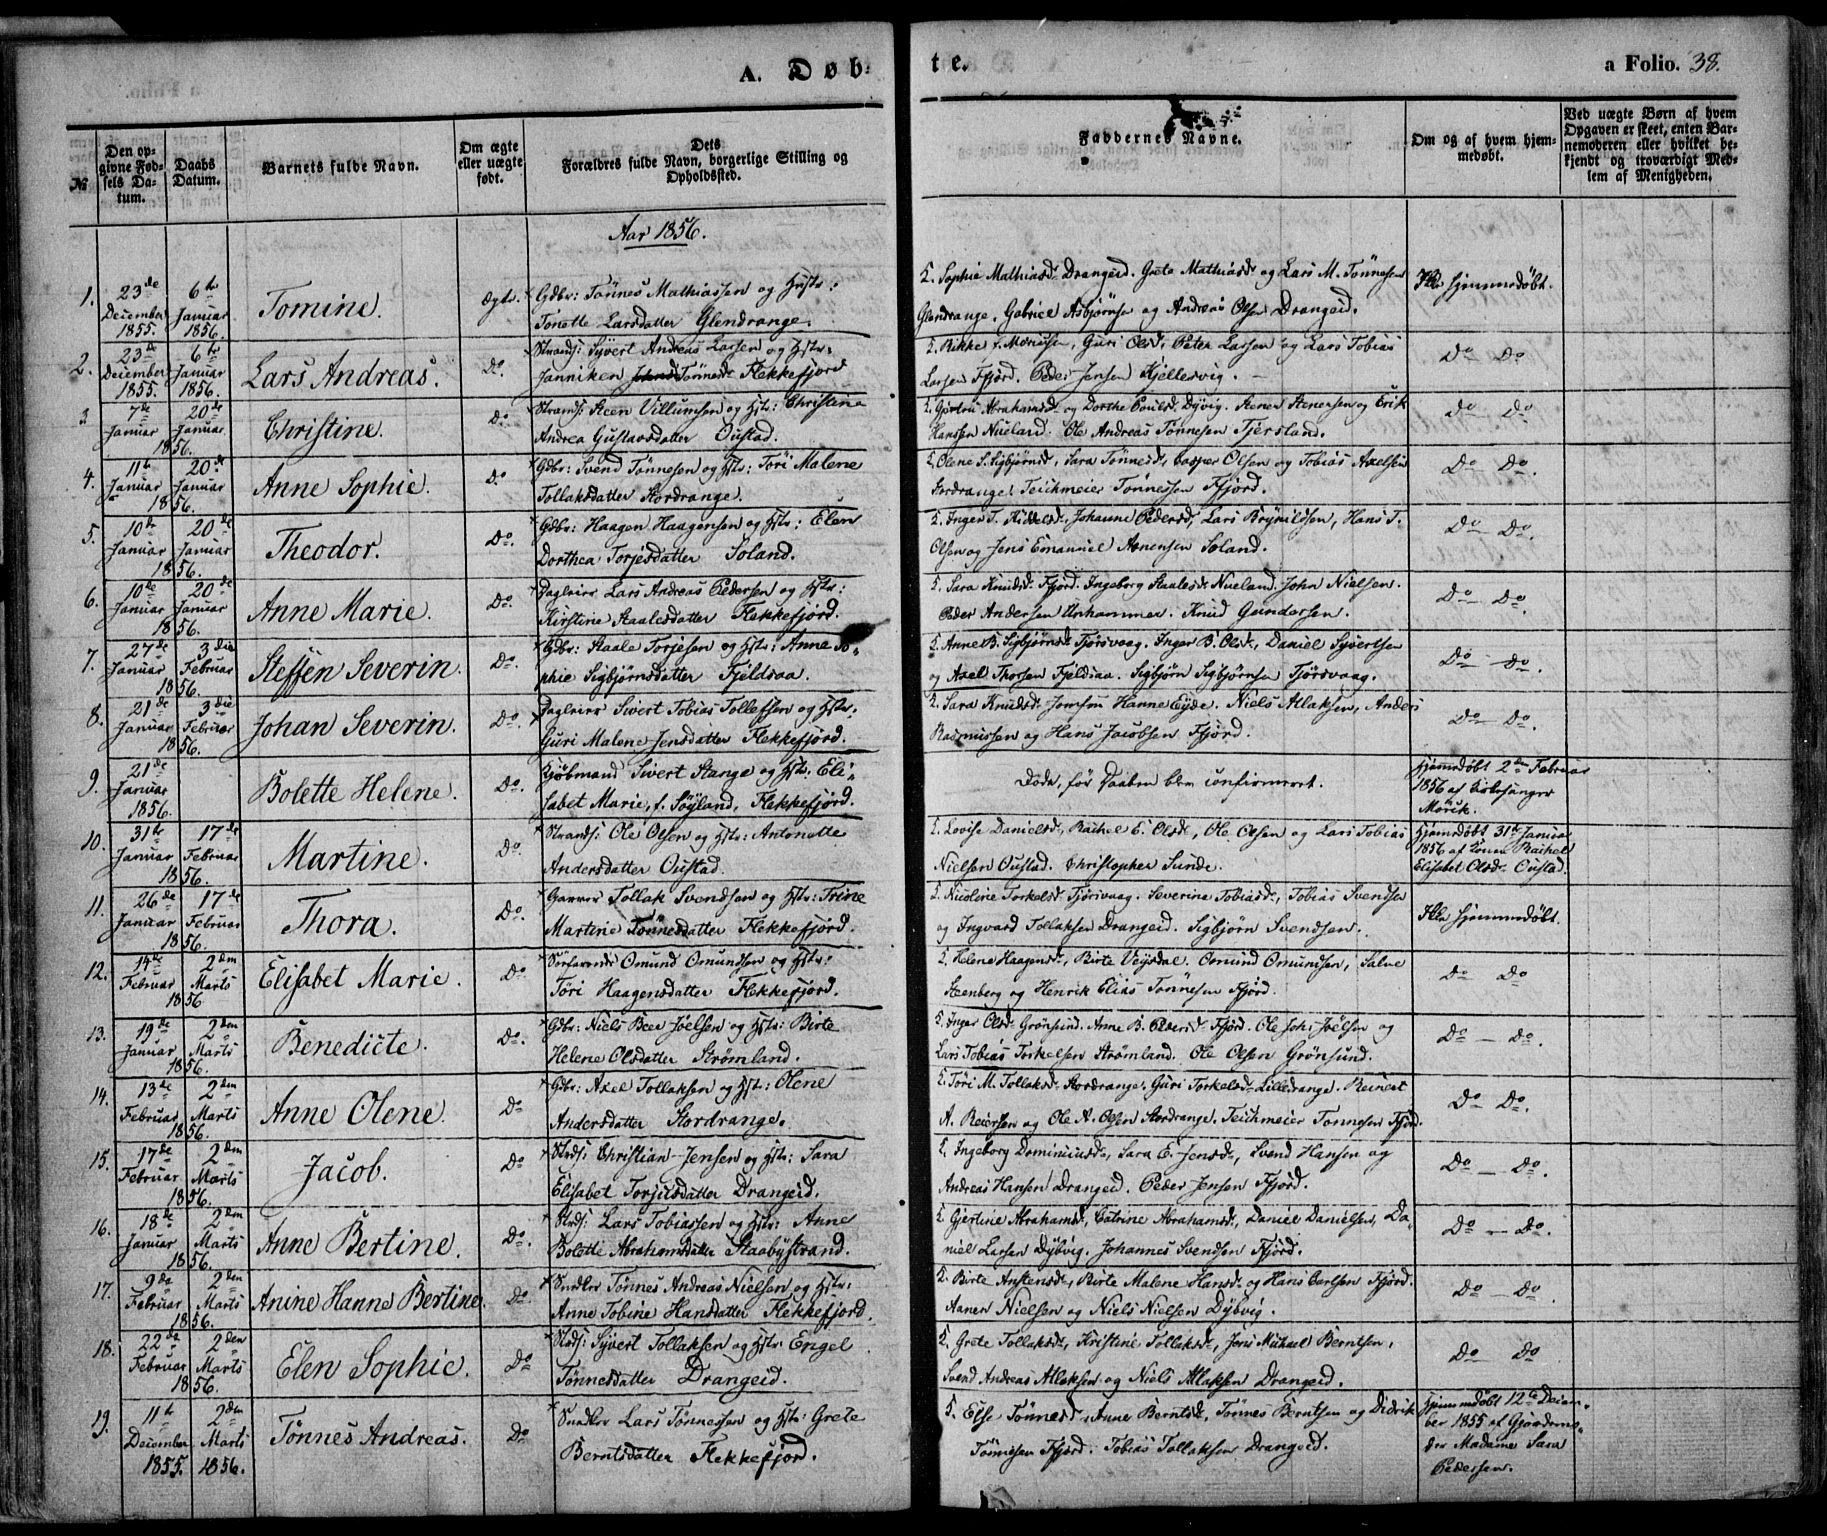 A. Døb-
te.
a Folio. 38.
№
Den op-
givne Fød-
sels Da-
tum.
Daabs
Datum.
Barnets fulde Navn.
Om ægte
eller uægte
født.
Dets
Forældres fulde Navn, borgerlige Stilling og
Opholdssted.
Faddernes Navne.
Om og af hvem hjem-
medøbt.
Ved uægte Børn af hvem
Opgaven er skeet, enten Bar-
nemoderen eller hvilket be-
kjendt og troværdigt Med-
lem af Menigheden.
Aar 1856.
1. 23de December 1855. 6te Januar 1856. Tomine. ægte.
Gdbr: Tönnes Mathiassen og Hstr:
Tonette Larsdatter Glendrange.
Sophie Mathiasd. Drangeid. Grete Mathiasd. og Lars M. Tönnesen
Glendrange. Gabriel Asbjørnsen og Andreas Olsen Drangeid.
Ikke hjemmedöbt.
2. 23de December 1855. 6te Januar 1856. Lars Andreas. Do.
Strands: Syvert Andreas Larsen og Hstr:
Janniken Tönnesd. Flekkefjord
Rikke f. Moriisen, Guri Olsd. Peter Larsen og Lars Tobias
Larsen Fjörd. Peder Jensen Kjellesvig.
Do Do
3. 7de Januar 20de Januar 1856. Christine. Do.
Strands: Steen Villumsen og Hstr: Christine
Andrea Gustavsdatter Oustad.
Gjertru Abrahamsd. og Dorthe Poulsd. Dybvig. Aener Aenersen og Erik
Hanssen Nueland. Ole Andreas Tönnesen Fjersland.
Do Do
4. 11te Januar 20de Januar 1856. Anne Sophie. Do.
Gdbr: Svend Tönnesen og Hstr: Töri Malene
Tollaksdatter Stordrange.
Olene S. Sigbjørnsd., Sara Tönnesd., Casper Olsen og Tobias Axelsen
Stordrange. Teichmeier Tönnessen Fjörd.
Do Do.
5. 10de Januar 20de Januar 1856. Theodor. Do.
Gdbr: Haagen Haagensen og Hstr: Elen
Dorthea Torjesdatter Soland.
Inger T. Kittelsd., Johanne Pedersd., Lars Brynildsen, Hans T.
Olsen og Jens Emanuel Asnensen Soland.
Do Do.
6. 10de Januar 20de Januar 1856. Anne Marie. Do.
Dagleier Lars Andreas Pedersen og Hstr:
Kirstine Staalesdatter Flekkefjord.
Sara Knudsd. Fjord. Ingeborg Staalesd. Nueland. John Nielsen.
Peder Andersen Unhammer. Knud Gundersen.
Do Do.
7. 27de Januar 3die Februar 1856. Steffen Severin. Do.
Gdbr: Staale Torjesen og Hstr: Anne So-
phie Sigbjörnsdatter Fjeldsaa.
Anne B. Sigbjørnsd. Fjörsvaag. Inger B. Olsd., Daniel Syvertsen
og Axel Thorsen Fjeldsaa. Sigbjørn Sigbjørnsen Fjörsvaag.
Do Do.
8. 21de Januar 3die Februar 1856. Johan Severin. Do.
Dagleier Sivert Tobias Tollefsen og Hstr:
Guri Malene Jensdatter Flekkefjord.
Sara Knudsd. Jomfru Hanne Eyde. Niels Atlaksen, Anders
Rasmussen og Hans Jacobsen Fjörd.
Do Do.
9. 21de Januar 1856. Bolette Helene. Do.
Kjöbmand Sivert Stange og Hstr: Eli-
sabet Marie, f. Söyland, Flekkefjord.
Döde, för Daaben blev confirmeret.
Hjemedöbt 2den Februar
1856 af Kirkesanger
Mörik.
10. 31te Januar 17de Februar 1856. Martine. Do.
Strands: Ole Olsen og Hstr: Antonette
Andersdatter Oustad.
Lovise Danielsd., Rachel E. Olsd., Ole Olsen og Lars Tobias
Nielsen Oustad. Christopher Sunde.
Hjemedöbt 31te Januar
1856 af Konen Rachel
Elisabet Olsd. Oustad.
11. 26de Januar 17de Februar 1856. Thora. Do.
Garver Tollak Svendsen og Hstr: Trine
Martine Tönnesdatter Flekkefjord.
Nicoline Torkelsd. Fjörsvaag. Severine Tobiasd., Tobias Svendsen
og Ingvard Tollaksen Drangeid. Sigbjørn Svendsen.
Ikke hjemmedöbt.
12. 14de Februar 2den Marts 1856 Elisabet Marie. Do.
Söefarende Omund Omundsen og Hstr:
Töri Haagensdatter Flekkefjord.
Helene Haagensd., Birte Veisdal. Osmund Omundsen, Salve
Steenberg og Henrik Elias Tönnesen Fjörd.
Do Do
13. 19de Januar 2den Marts 1856. Benedicte. Do.
Gdbr: Niels Beer Joelsen og Hstr: Birte
Helene Olsdatter Strömland.
Inger Olsd. Grönsund. Anne B. Pedersd. Fjörd. Ole Joh: Joëlsen og
Lars Tobias Torkelsen Strömland. Ole Olsen Grönsund.
Do Do.
14. 13de Februar 2den Marts 1856. Anne Olene. Do
Gdbr: Axel Tollaksen og Hstr: Olene
Andersdatter Stordrange.
Töri M. Tollaksd. Stordrange. Guri Torkelsd. Lilledrange. Reinert
A. Reiersen og Ole A. Olsen Stordrange. Teichmeier Tönnesen Fjörd.
Do Do.
15. 17de Februar 2den Marts 1856. Jacob. Do
Strds: Christian Jensen og Hstr: Sara
Elisabet Torjusdatter Drangeid.
Ingeborg Dominicusd., Sara E. Jensd., Svend Hansen og
Andreas Hansen Drangeid. Peder Jensen Fjörd.
Do Do.
16. 18de Januar 2den Marts 1856. Anne Bertine. Do.
Strds: Lars Tobiassen og Hstr: Anne
Bolette Abrahamsdatter Staabystrand.
Gjertine Abrahamsd., Catrine Abrahamsd., Daniel Danielsen, Da-
niel Larsen Dybvig. Johannes Svendsen Fjörd.
Do Do.
17. 9de Februar 2den Marts 1856. Anine Hanne Bertine. Do.
Snedker Tönnes Andreas Nielsen og Hstr:
Anne Tobine Hansdatter Flekkefjord.
Birte Anstensd., Birte Malene Hansd. og Hans Carlsen Fjörd.
Aanen Nielsen og Niels Nielsen Dybvig.
Do Do.
18. 22de Februar 2den Marts 1856. Elen Sophie. Do
Strds: Syvert Tollaksen og Hstr: Engel
Tönnesdatter Drangeid.
Grete Tollaksd., Kristine Tollaksd., Jens Michael Berntsen,
Svend Andreas Atlaksen og Niels Atlaksen Drangeid.
Do Do
19. 11te December 1855. 2den Marts 1856. Tönnes Andreas. Do
Snedker Lars Tönnessen og Hstr: Grete
Berntsdatter Flekkefjord.
Else Tönnesd., Anne Berntsd., Tönnes Berntsen og Didrik
Tönnesen Fjörd. Tobias Tollaksen Drangeid.
Hjemmedöbt 12te Decem-
ber 1855 af Gjordemo-
der Madame Sara
Pedersen.